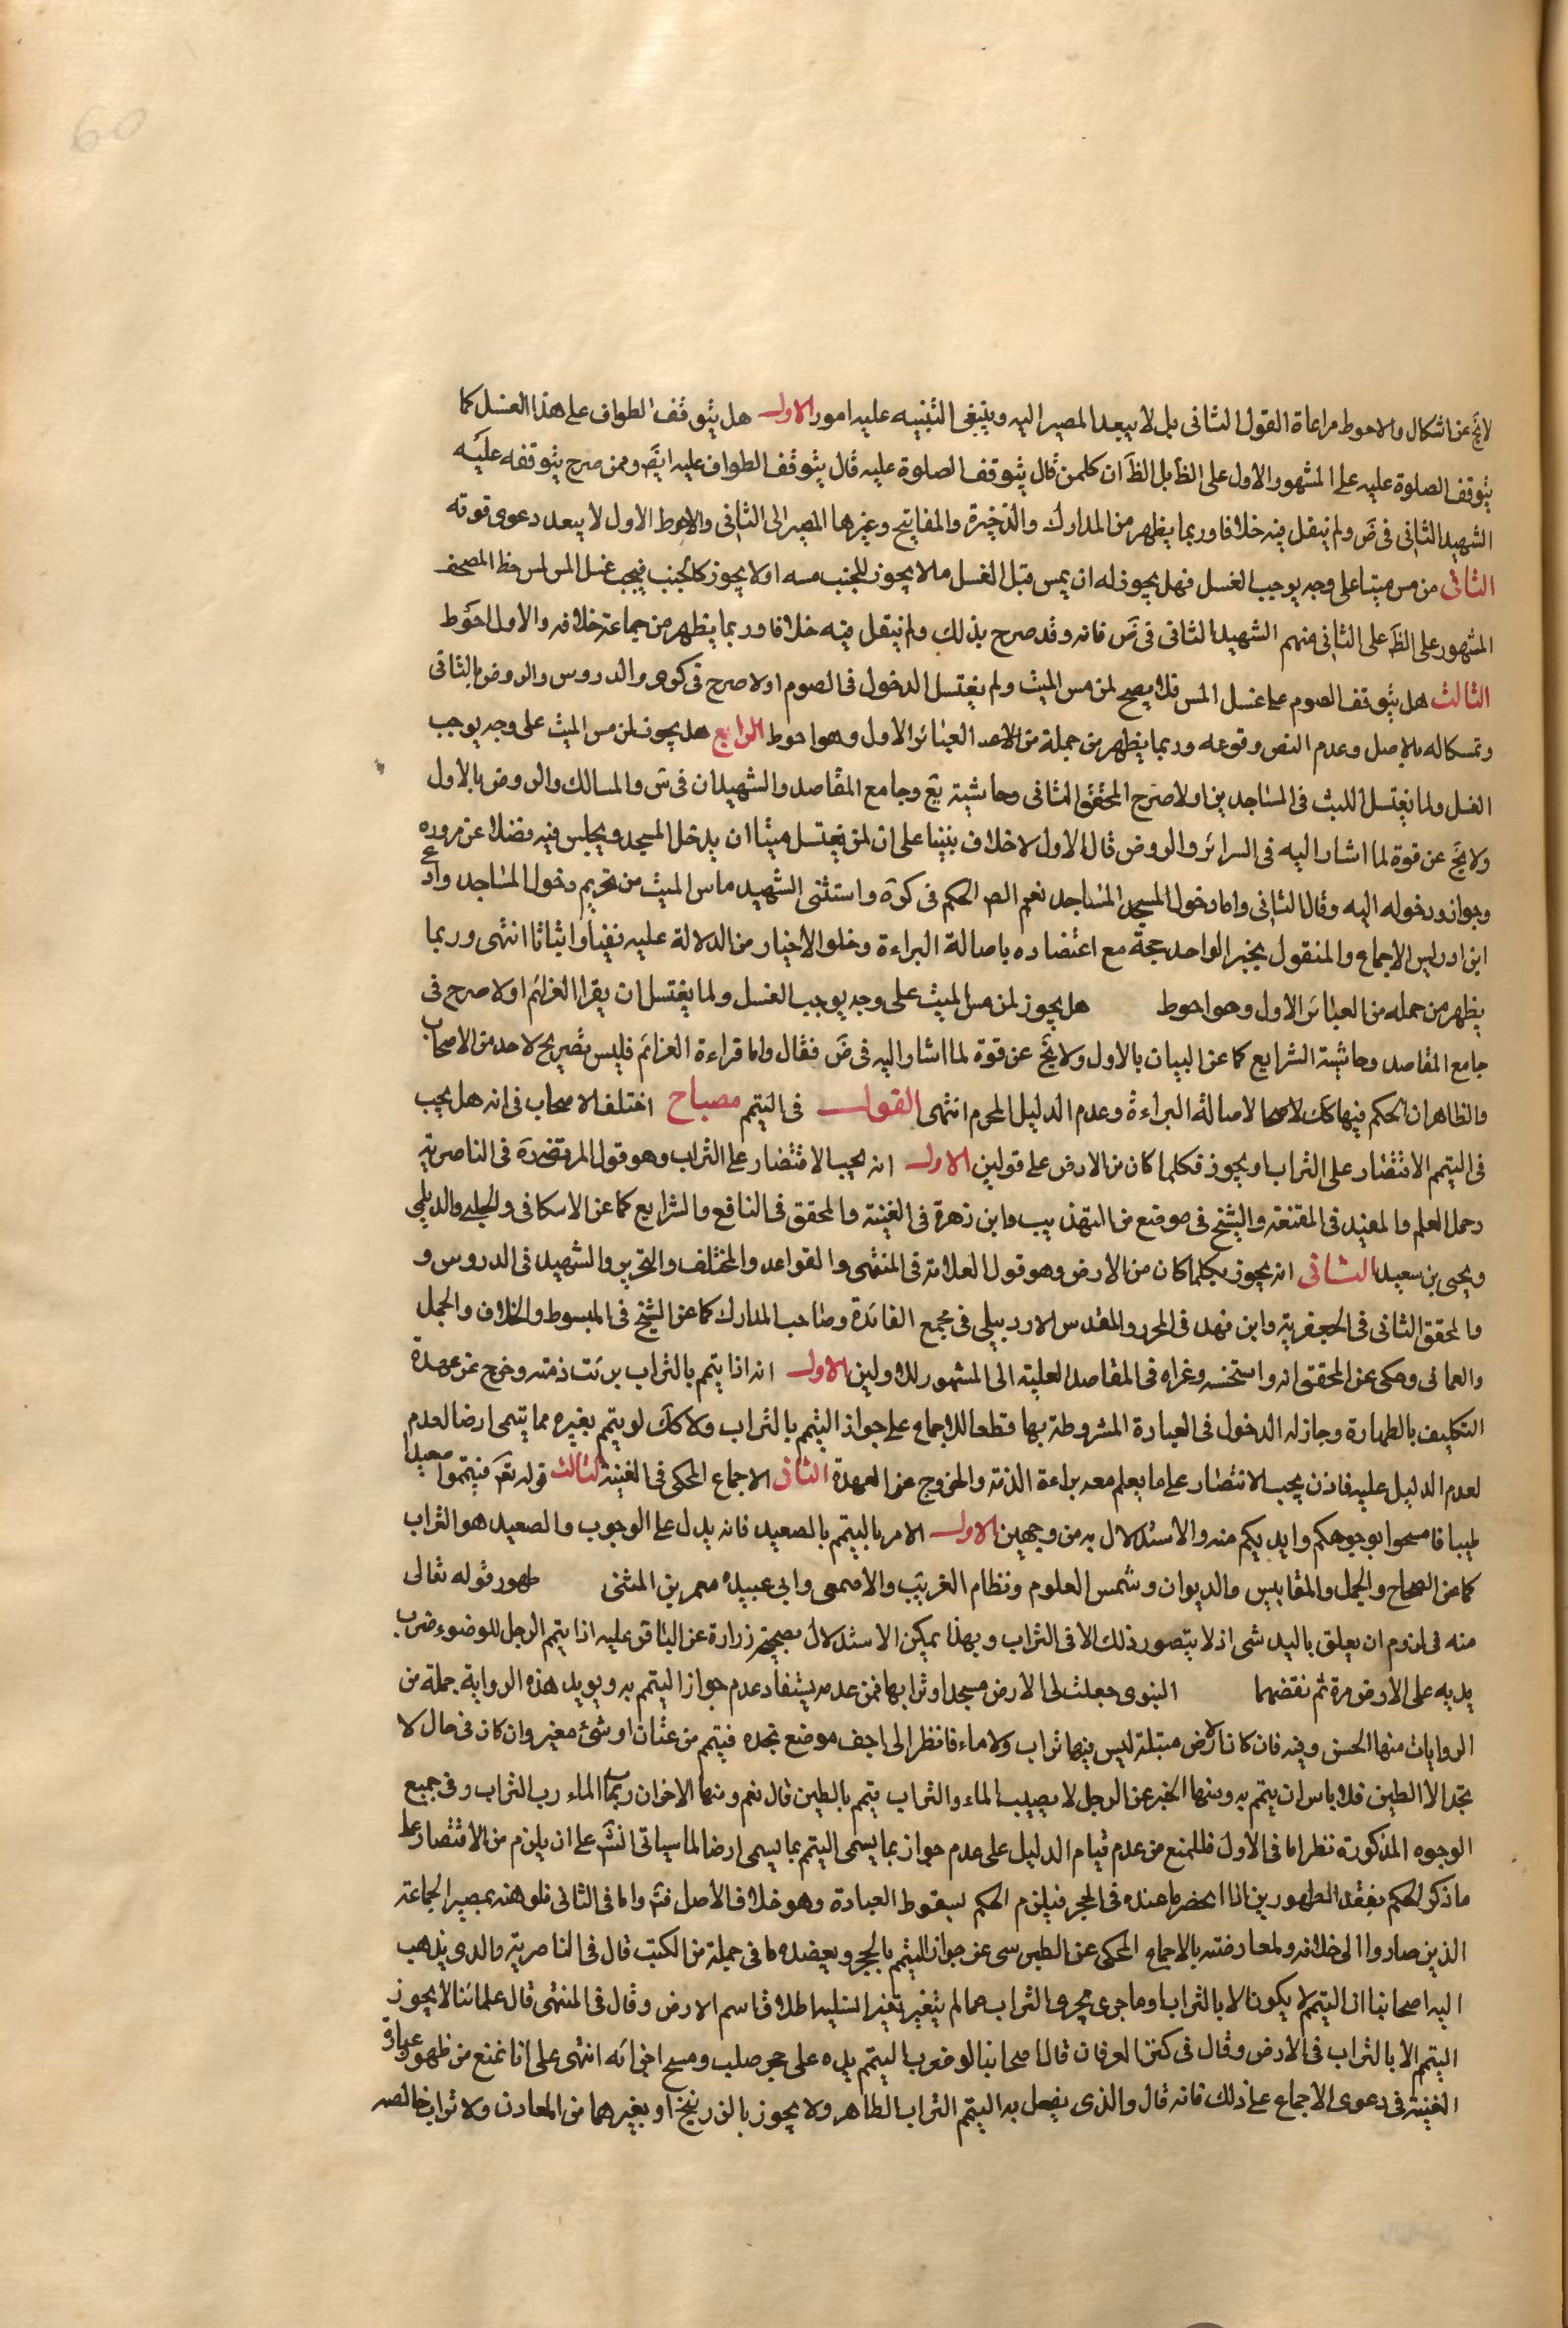 60
لا يخ عن اشكال والاحوط مراعاة القول الثانى بل لا يبعد المصير اليه وينبغى التنبيه عليه امور الاول هل يتوقف الطواف على هذا الغسل كما
يتوقف الصلوة عليه على المشهور الاول على الظَ بل الظَ ان كلمن قال يتوقف الصلوة عليه قال يتوقف الطواف عليه ايضَ وممن صرح بتوقفه عليه
الشهيد الثانى فى ضَ ولم ينقل فيه خلافا وربما يظهر من المدارك والذخيرة والمفاتيح وغيرها المصير الى الثانى والاحوط الاول لا يبعد دعوى قوته
الثانى من مس ميتا على وجه يوجب الغسل فهل يجوز له ان يمس قبل الغسل ما لا يجوز للجنب مسه او لا يجوز كالجنب فيجب غسل المس لمس خط المصحف
المشهور على الظَ على الثانى منهم الشهيد الثانى فى ضَ فانه وقد صرح بذلك ولم ينقل فيه خلافا وربما يظهر من جماعة خلافه والاول احوط
الثالث هل يتوقف الصوم على غسل المس فلا يصح لمن مس الميت ولم يغتسل الدخول فى الصوم اولا صرح فى كرى والدروس والروض بالثانى
وتمسكا له بالاصل وعدم النص وقوعه وربما يظهر من جملة من العبائر الاول وهو احوط الرابع هل يجوز لمن مس الميت على وجه يوجب
الغسل ولما يغتسل اللبث فى المساجد بن اولا صرح المحقق الثانى وحاشية يع وجامع المقاصد والشهيدان فى س والمسالك والروض بالاول
ولا يخ عن قوة لما اشار اليه فى السرائر والروض قال الاول لا خلاف بيننا على ان لمن يغتسل ميتا ان يدخل المسجد ويجلس فيه فضلا عن مروره
وجواز ودخوله اليه وقال الثانى واما دخول المساجد نعم الحكم فى كرة واستثنى الشهيد ماس الميت من تحريم دخول المساجد وادعى
ابن ادريس الاجماع والمنقول بخبر الواحد حجة مع اعتضاده باصالة البراءة وخلو الاخبار من الدلالة عليه نفيا واثباتا انتهى وربما
يظهر من جمله من العبائر الاول وهو احوط هل يجوز لمن مس الميت على وجه يوجب الغسل ولما يغتسل ان يقرا العزائم اولا صرح فى
جامع المقاصد وحاشية الشرايع كما عن البيان بالاول ولا يخَ عن قوة لما اشار اليه فى ضَ فقال واما قراءة العزائم فليس تصريح لاحد من الاصحاب
والظاهر ان الحكم فيها كك لاصالة البراءة وعدم الدليل المحرم انتهى القول فى التيمم مصباح اختلف الاصحاب فى انه هل يجب
فى التيمم الاقتصار على التراب او يجوز فكلما كان من الارض على قولين الاول انه يجب الاقتصار على التراب وهو قول المرتضى ره فى الناصرية
وجمل العلم والمفيد فى المقنعة والشيخ فى موضع من التهذيب وابن زهرة فى الغنية والمحقق فى النافع والشرايع كما عن الاسكافى والحلبى والديلمى
ويحيى بن سعيد الثانى انه يجوز بكلما كان من الارض وهو قول العلامة فى المنتهى والقواعد والمختلف والتحرير والشهيد فى الدروس و
والمحقق الثانى فى الجعفرية وابن فهد فى المحرر والمقدس الاردبيلى فى مجمع الفائدة وصاحب المدارك كما عن الشيخ فى المبسوط والخلاف والجمل
والعمانى وحكى عن المحقق انه واستحسنه وغراه فى المقاصد العلية الى المشهور للاولين الاول انه اذا تيمم بالتراب برئت ذمته وخرج عن عهدة
التكليف بالطهارة وجاز له الدخول فى العبادة المشروطة بها قطعا للاجماع على جواز التيمم بالتراب ولا كك لو تيمم بغيره مما يتسمى ارضا لعدم
لعدم الدليل عليه فاذن يجب الاقتصار على ما يعلم معه براءة الذمة والخروج عن العهدة الثانى الاجماع المحكى فى الغنية الثالث قوله تعَ فتيمموا صعيدا
طيبا فامسحوا بوجوهكم وايديكم منه والاستدلال به من وجهين الاول الامر بالتيمم بالصعيد فانه يدل على الوجوب والصعيد هو التراب
كما عن الصحاح والجمل والمقاييس والديوان وشمس العلوم ونظام الغريب والاصمعى وابى عبيده معمر بن المثنى ظهور قوله تعالى
منه فى لزوم ان يعلق باليد شى اذ لا يتصور ذلك الا فى التراب وبهذا يمكن الاستدلال بصحيحة زرارة عن الباقر عليه اذا تيمم الرجل للوضوء ضرب
يديه على الارض مرة ثم نفضهما النبوى جعلت لى الارض مسجدا وترابها فمن عدمه يستفاد عدم جواز التيمم به ويويد هذه الرواية جملة من
الروايات منها الحسن وفيه فان كان الارض مبتلة ليس فيها تراب ولا ماء فانظر الى اجف موضع تجده فتيمم من غبار او شئ مغبر وان كان فى حال لا
تجد الا الطين فلا باس ان يتيمم به ومنها الخبر عن الرجل لا يصيب الماء والتراب يتيمم بالطين قال نعم ومنها الاخران رب الماء رب التراب وفى جميع
الوجوه المذكورة نظر اما فى الاول فللمنع من عدم قيام الدليل على عدم جواز بما يسمى التيمم بما يسمى ارضا لما سياتى انشَ على ان يلزم من الاقتصار على
ما ذكر الحكم بفقد الطهورين اذا انحضر ما عنده فى الحجر فيلزم الحكم بسقوط العبادة وهو خلاف الاصل فتَ واما فى الثانى فلوهنه بمصير الجماعة
الذين صاروا الى خلافه ولمعارضته بالاجماع المحكى عن الطبرسى عن جواز التيمم بالحجر ويعضده ما فى جملة من الكتب قال فى الناصرية والذى يذهب
اليه اصحابنا ان التيمم لا يكون الا بالتراب او ما جرى مجرى التراب مما لم يتغير تغير ا يسلبه اطلاق اسم الارض وقال فى المنتهى قال علمائنا لا يجوز
التيمم الا بالتراب فى الارض وقال فى كنز العرفان قال اصحابنا لو ضرب التيمم يده على حجر صلب ومسح اجزائه انتهى على انا نمنع من ظهور عبارة
الغنية فى دعوى الاجماع على ذلك فانه قال والذى يفعل به التيمم التراب الطاهر ولا يجوز بالزرنيخ او بغيرهما من المعادن ولا تراب خالصه